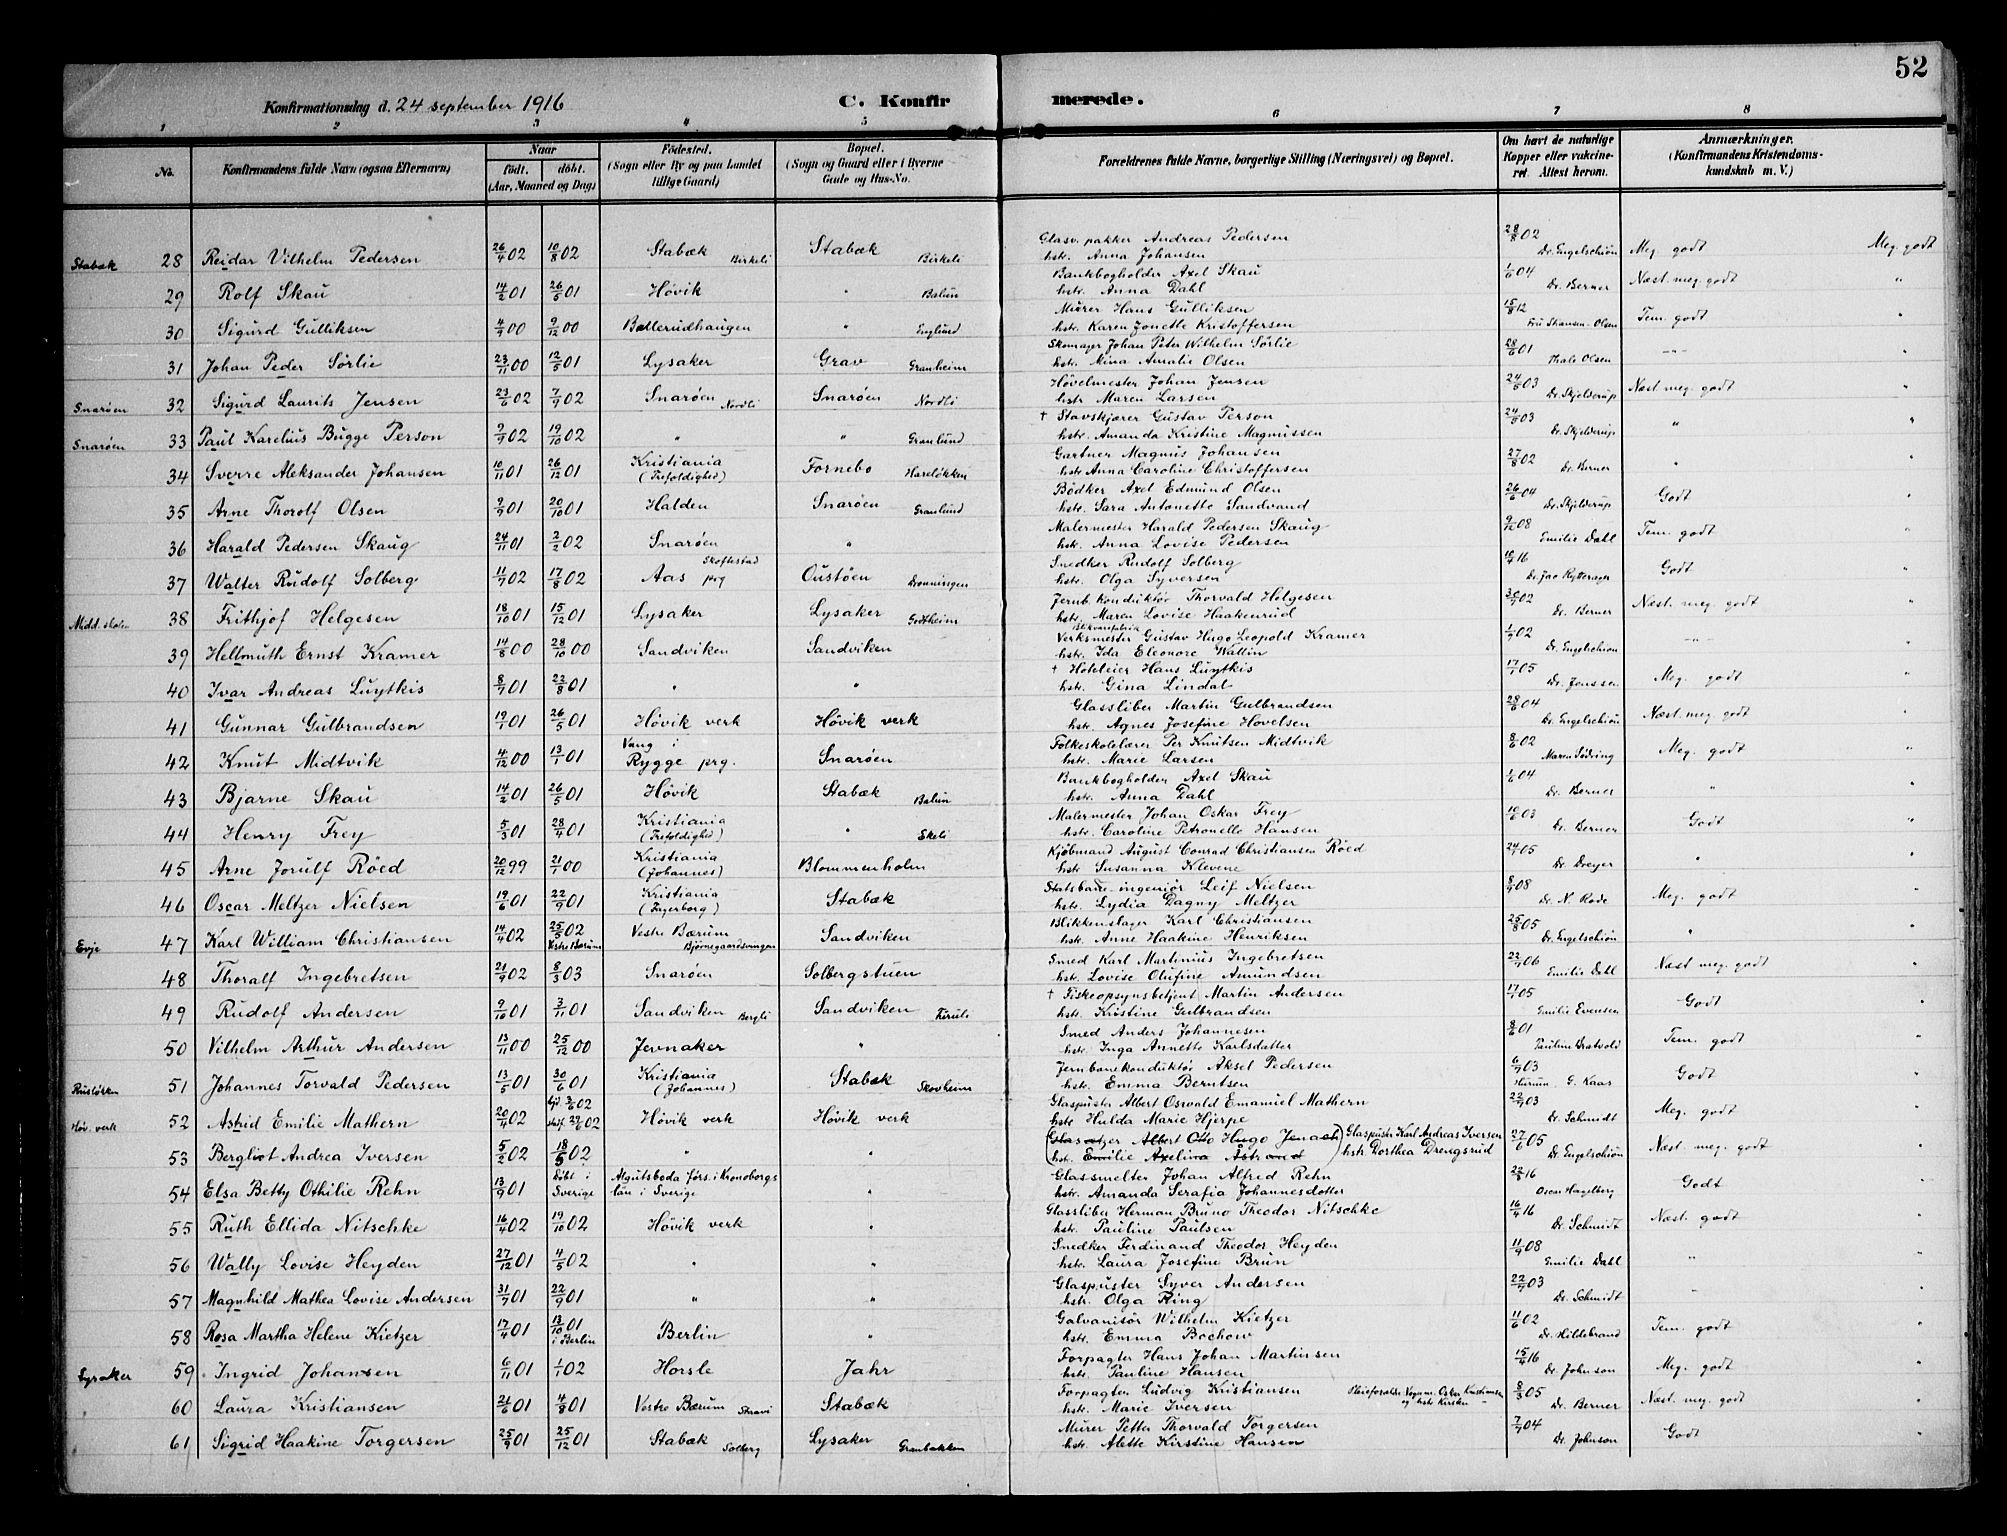 52
Konfirmationsdag d. 24 september 1916
C. Konfirmerede.
1 2 3 4 5 6 7 8
No. Konfirmandens fulde Navn (ogsaa Efternavn) Naar født. døbt. (Aar, Maaned og Dag) Fødested. (Sogn eller By og paa Landet tillige Gaard) Bopæl. (Sogn og Gaard eller i Byerne Gade og Hus-No. Forældrenes fulde Navne, borgerlige Stilling (Næringsvei) og Bopæl. Om havt de naturlige Kopper eller vakcineret. Attest herom. Anmærkninger. (Konfirmandens Kristendomskundskab m. V.)
Stabæk 28 Reidar Vilhelm Pedersen 26/4 02 10/8 02 Stabæk Birkeli Stabæk Birkeli Glasv. pakker Andreas Pedersen hstr. Anna Johansen 28/8 02 Dr. Engelschiøn Meg. godt Meg. godt
29 Rolf Skau 14/2 01 26/5 01 Høvik " Balun Bankbogholder Axel Skau hstr. Anna Dahl 1/6 04 Dr. Berner Næst. meg. godt "
30 Sigurd Gulliksen 4/9 00 9/12 00 Ballerudhaugen " Englund Murer Hans Gulliksen hstr. Karen Jonette Kristoffersen 15/8 12 Tem. godt "
31 Johan Peder Sørlie 23/11 00 12/5 01 Lysaker Grav Granheim Skomager Johan Peter Wilhelm Sørlie hstr. Mina Amalie Olsen 28/6 01 Thale Olsen -"- "
Snarøen 32 Sigurd Laurits Jensen 23/6 02 7/9 02 Snarøen Nordli Snarøen Nordli Høvelmester Johan Jensen hstr. Maren Larsen 24/6 03 Dr. Skjelderup Næst meg. godt "
Snarøen 33 Paul Karelius Bugge Person 9/9 02 19/10 02 " " Granlund † Stavskjærer Gustav Person hstr. Amanda Kristine Magnussen 03 Dr. Skjelderup " "
34 Sverre Aleksander Johansen 10/11 01 26/12 01 Kristiania (Trefoldighed) Fornebo Hareløkken Gartner Magnus Johansen hstr. Anna Caroline Christoffersen 27/8 02 Dr. Berner "
35 Arne Thorolf Olsen 9/9 01 20/10 01 Halden Snarøen Granlund Bødker Axel Edmund Olsen hstr. Sara Antonette Sandvand 26/6 04 Dr. Skjelderup Godt "
36 Harald Pedersen Skaug 24/11 01 2/2 02 Snarøen " Malermester Harald Pedersen Skaug hstr. Anna Lovise Pedersen 9/12 08 Emilie Dahl Tem. godt "
37 Walter Rudolf Solberg 11/7 02 17/8 02 Aas prg Skoftestad Oustøen Dronningen Snedker Rudolf Solberg hstr. Olga Syversen 10/4 16 Godt "
Midd. skolen 38 Frithjof Helgesen 18/10 01 15/12 01 Lysaker Lysaker Godtheim Jernb. konduktør Thorvald Helgesen hstr. Maren Lovise Haakenrud 30/7 02 Dr. Berner Næst. meg. godt "
39 Hellmuth Ernst Kramer 14/8 00 28/10 00 Sandviken Sandviken Verksmester Gustav Hugo Leopold Kramer hstr. Ida Eleonore Wallin 1/7 02 Dr. Engelschiøn -"- "
40 Ivar Andreas Luytkis 8/7 01 22/8 01 " " † Hoteleier Hans Luytkis hstr. Gina Lindal 17/1 05 Dr. Jenssen Meg. godt "
41 Gunnar Gulbrandsen 19/1 01 26/5 01 Høvik verk Høvik verk Glassliber Martin Gulbrandsen hstr. Agnes Josefine Hovelsen 28/6 04 Dr. Engelschiøn Næst. meg godt "
42 Knut Midtvik 4/12 00 13/1 01 Vang i Rygge prg. Snarøen Folkeskolelærer Per Knutsen Midtvik hstr. Marie Larsen 8/6 02 Maren Sødring Meg. godt "
43 Bjarne Skau 14/2 01 26/5 01 Høvik Stabæk Balun Bankbogholder Axel Skau hstr. Anna Dahl 1/6 04 Dr. Berner " "
44 Henry Frey 5/3 01 28/4 01 Kristiania (Trefoldighed) " Skeli Malermester Johan Oskar Frey hstr. Caroline Petronelle Hansen 19/6 03 Dr. Berner Godt "
45 Arne Jorulf Røed 20/12 99 21/1 00 Kristiania (Johannes) Blommenholm Kjøbmand August Conrad Christiansen Røed hstr. Susanna Klevene 24/7 05 Dr. Dreyer " "
46 Oscar Meltzer Nielsen 19/6 01 22/9 01 Kristiania (Ingerborg) Stabæk Statsbane-ingeniør Leif Nielsen hstr. Lydia Dagny Meltzer 8/9 08 Dr. N. Rode Meg. godt "
Evje 47 Karl William Christiansen 14/4 02 25/5 02 Vestre Bærum Vestre Bærum Bjørnegaardsvingen Sandviken Blikkenslager Karl Christiansen hstr. Anne Haakine Henriksen 25/8 05 Dr. Engelschiøn " "
48 Thoralf Ingebretsen 21/9 02 8/3 03 Snarøen Solbergstuen Smed Karl Martinius Ingebretsen hstr. Lovise Olufine Amundsen 22/7 06 Emilie Dahl Næst meg. godt "
49 Rudolf Andersen 9/10 01 3/11 01 Sandviken Bergli Sandviken Furuli † Fiskeopsynsbetjent Martin Andersen hstr. Kristine Gulbrandsen 17/1 05 Emilie Evensen Godt "
50 Vilhelm Arthur Andersen 13/11 00 25/12 00 Jevnaker " Smed Anders Johannesen hstr. Inga Annette Karlsdatter 8/6 01 Pauline Bratvold Tem. godt "
Rusløkken 51 Johannes Torvald Pedersen 13/5 01 30/6 01 Kristiania (Johannes) Stabæk Skovheim Jernbanekonduktør Aksel Pedersen hstr. Emma Berntsen 6/9 03 G. Kaas Godt "
Høv. verk 52 Astrid Emilie Mathern 20/4 02 hjd. 3/6 02 stadf. 22/6 02 Høvik verk Høvik verk Glaspuster Albert Oswald Emanuel Mathern hstr. Hulda Marie Hjerpe 22/7 03 Dr. Schmidt Meg. godt "
53 Bergliot Andrea Iversen 5/2 02 18/5 02 " " (Glasætzer Albert Otto Hugo Jenach hst. Emilie Axelina Åstrand) Glaspuster Karl Andreas Iversen hstr Dorthea Drengsrud 27/6 05 Dr. Engelschiøn Næst meg. godt "
54 Elsa Betty Othilie Rehn 13/9 01 Døbt i Sverige Algutsboda førs. i Kronobergs län i Sverige " Glassmelter Johan Alfred Rehn hstr. Amanda Serafia Johannesdotter 22/8 16 Oscar Hagelberg Godt "
55 Ruth Ellida Nitschke 16/4 02 19/10 02 Høvik verk " Glassliber Herman Bruno Theodor Nitschke hstr. Pauline Paulsen 16/4 16 Dr. Schmidt Næst. godt "
56 Wally Lovise Heyden 27/12 01 4/5 02 " " Snedker Ferdinand Theodor Heyden hstr. Laura Josefine Brun 11/9 08 Emilie Dahl " "
57 Magnhild Mathea Lovise Andersen 31/7 01 22/9 01 " " Glaspuster Syver Andersen hstr. Olga Ring 22/7 03 Dr. Schmidt " "
58 Rosa Martha Helene Kietzer 17/4 01 13/10 01 i Berlin Berlin " Galvanisør Wilhelm Kietzer hstr. Emma Bochow 11/6 02 Dr. Hildebrand Tem. godt "
Lysaker 59 Ingrid Johansen 6/11 01 1/1 02 Horsle Jahr Forpagter Hans Johan Martinsen hstr. Pauline Hansen 15/4 16 Dr. Johnson Meg. godt "
60 Laura Kristiansen 24/6 01 4/8 01 Vestre Bærum Stabæk Forpagter Ludvig Kristiansen hstr. Marie Iversen Pleieforældre Vognm. Oskar Kristiansen og hstr. Kirsten 8/3 05 Dr. Berner Næst. meg. godt "
61 Sigrid Haakine Torgersen 25/9 01 25/12 01 Stabæk Solberg Lysaker Granbakken Murer Petter Thorvald Torgersen hstr. Alette Kirstine Hansen 7/7 04 Dr. Johnson Godt "